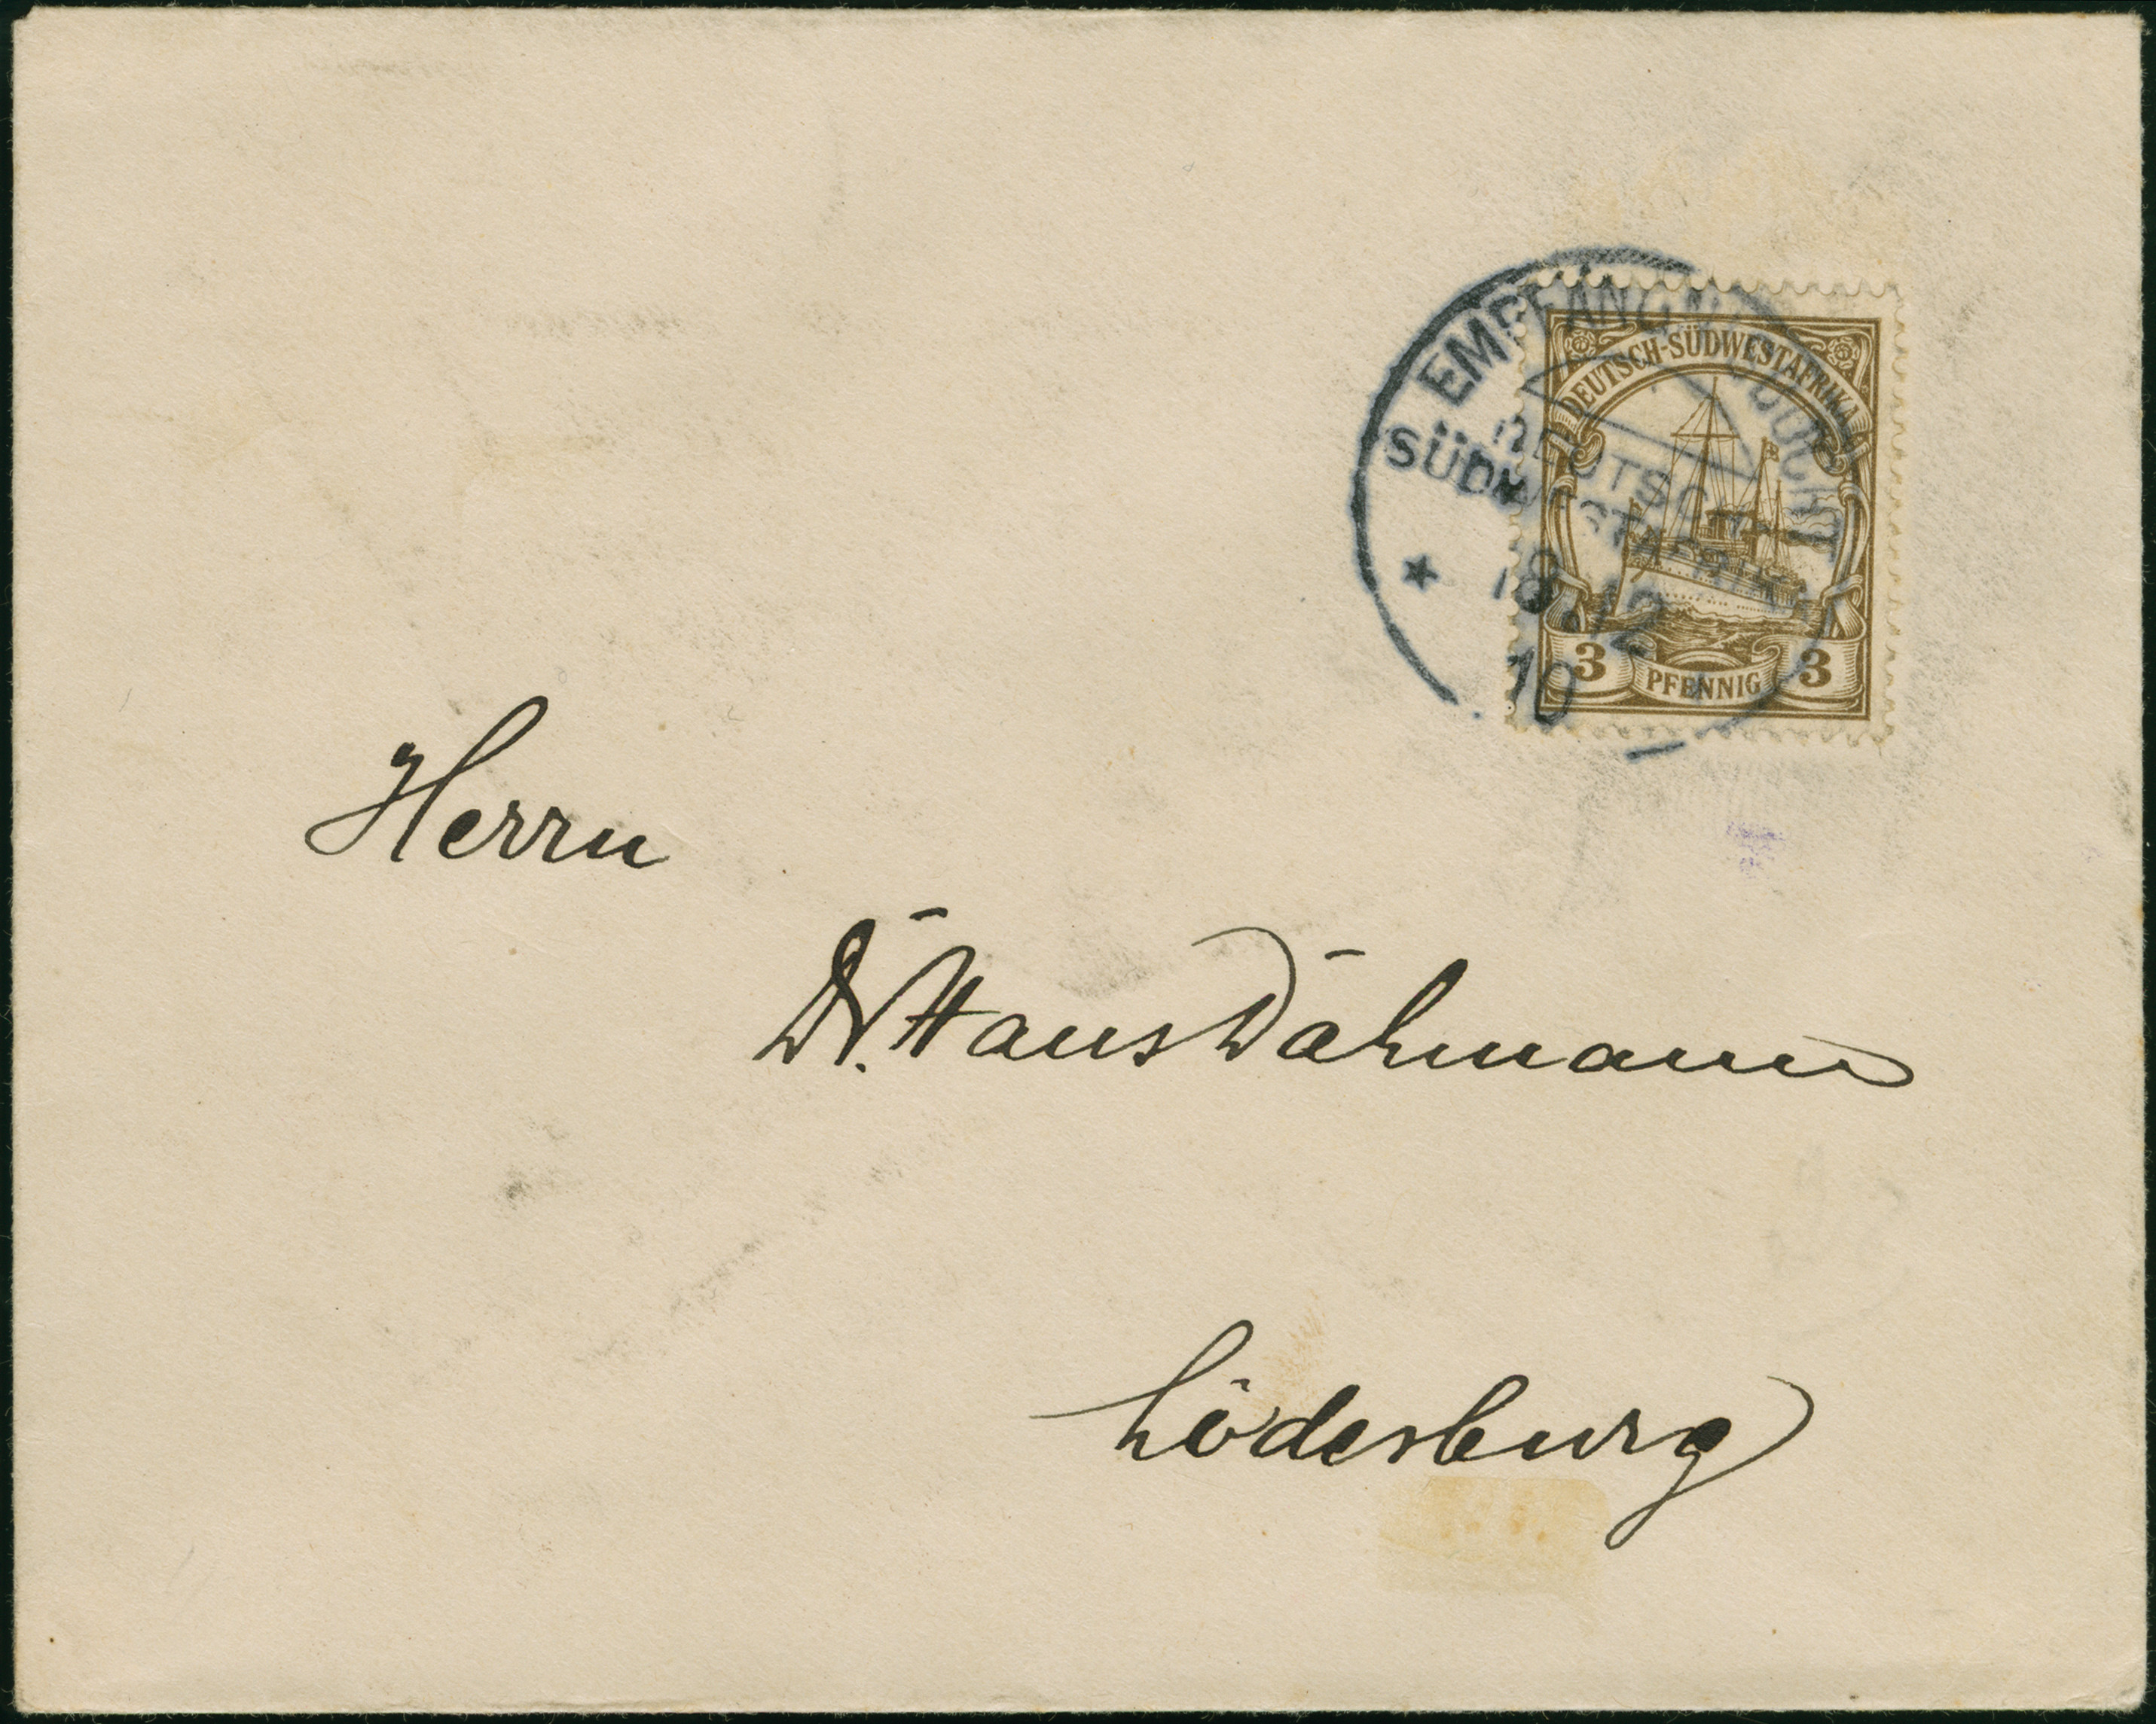 EMPFÄNGNISBUCHT
DEUTSCH-
SÜDWESTAFRIKA
18.12
10
DEUTSCH-SÜDWESTAFRIKA
3 PFENNIG 3
Herrn
Dr. Hans Dähmann
Löderburg